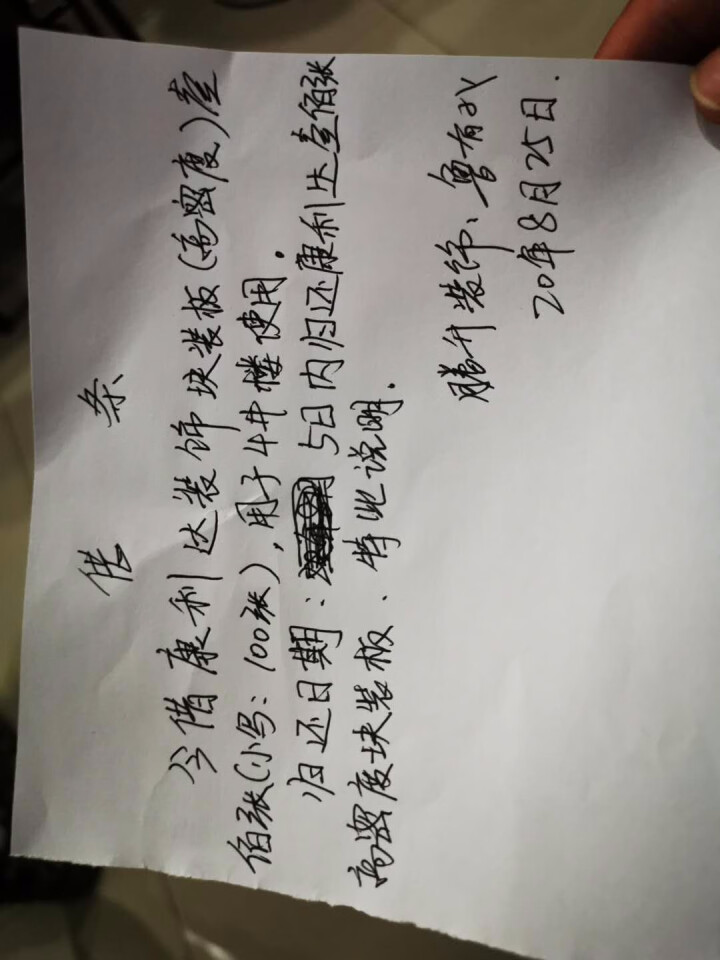 借 条
今借康利达装饰块装板(高密度)壹
佰张(小写:100张),用于4井楼使用.
归还日期: 5日内归还康利达壹佰张
高密度块装板、特此说明.
腾升装饰、鲁有
20年8月25日.